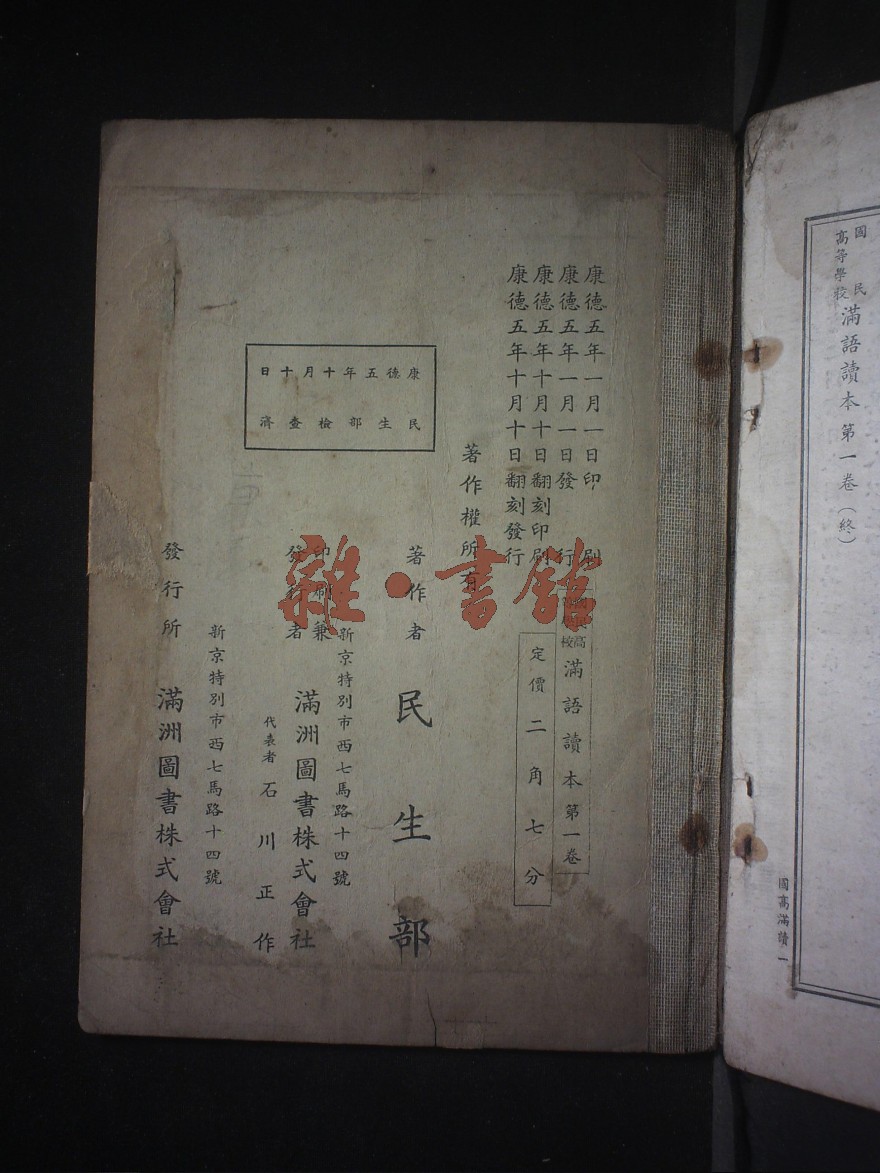 國民
高等學校 滿語讀本 第一卷(終)
國高滿讀一
康德五年一月一日印刷
康德五年一月一日發行
康德五年十月十日翻刻印刷
康德五年十月十日翻刻發行
滿語讀本 第一卷
定價二角七分
著作權所有
康德五年十月十日
民生部檢查濟
著作者 民生部
新京特別市西七馬路十四號
印刷兼
發行者 滿洲圖書株式會社
代表者 石川正作
新京特別市西七馬路十四號
發行所 滿洲圖書株式會社
雜·書館